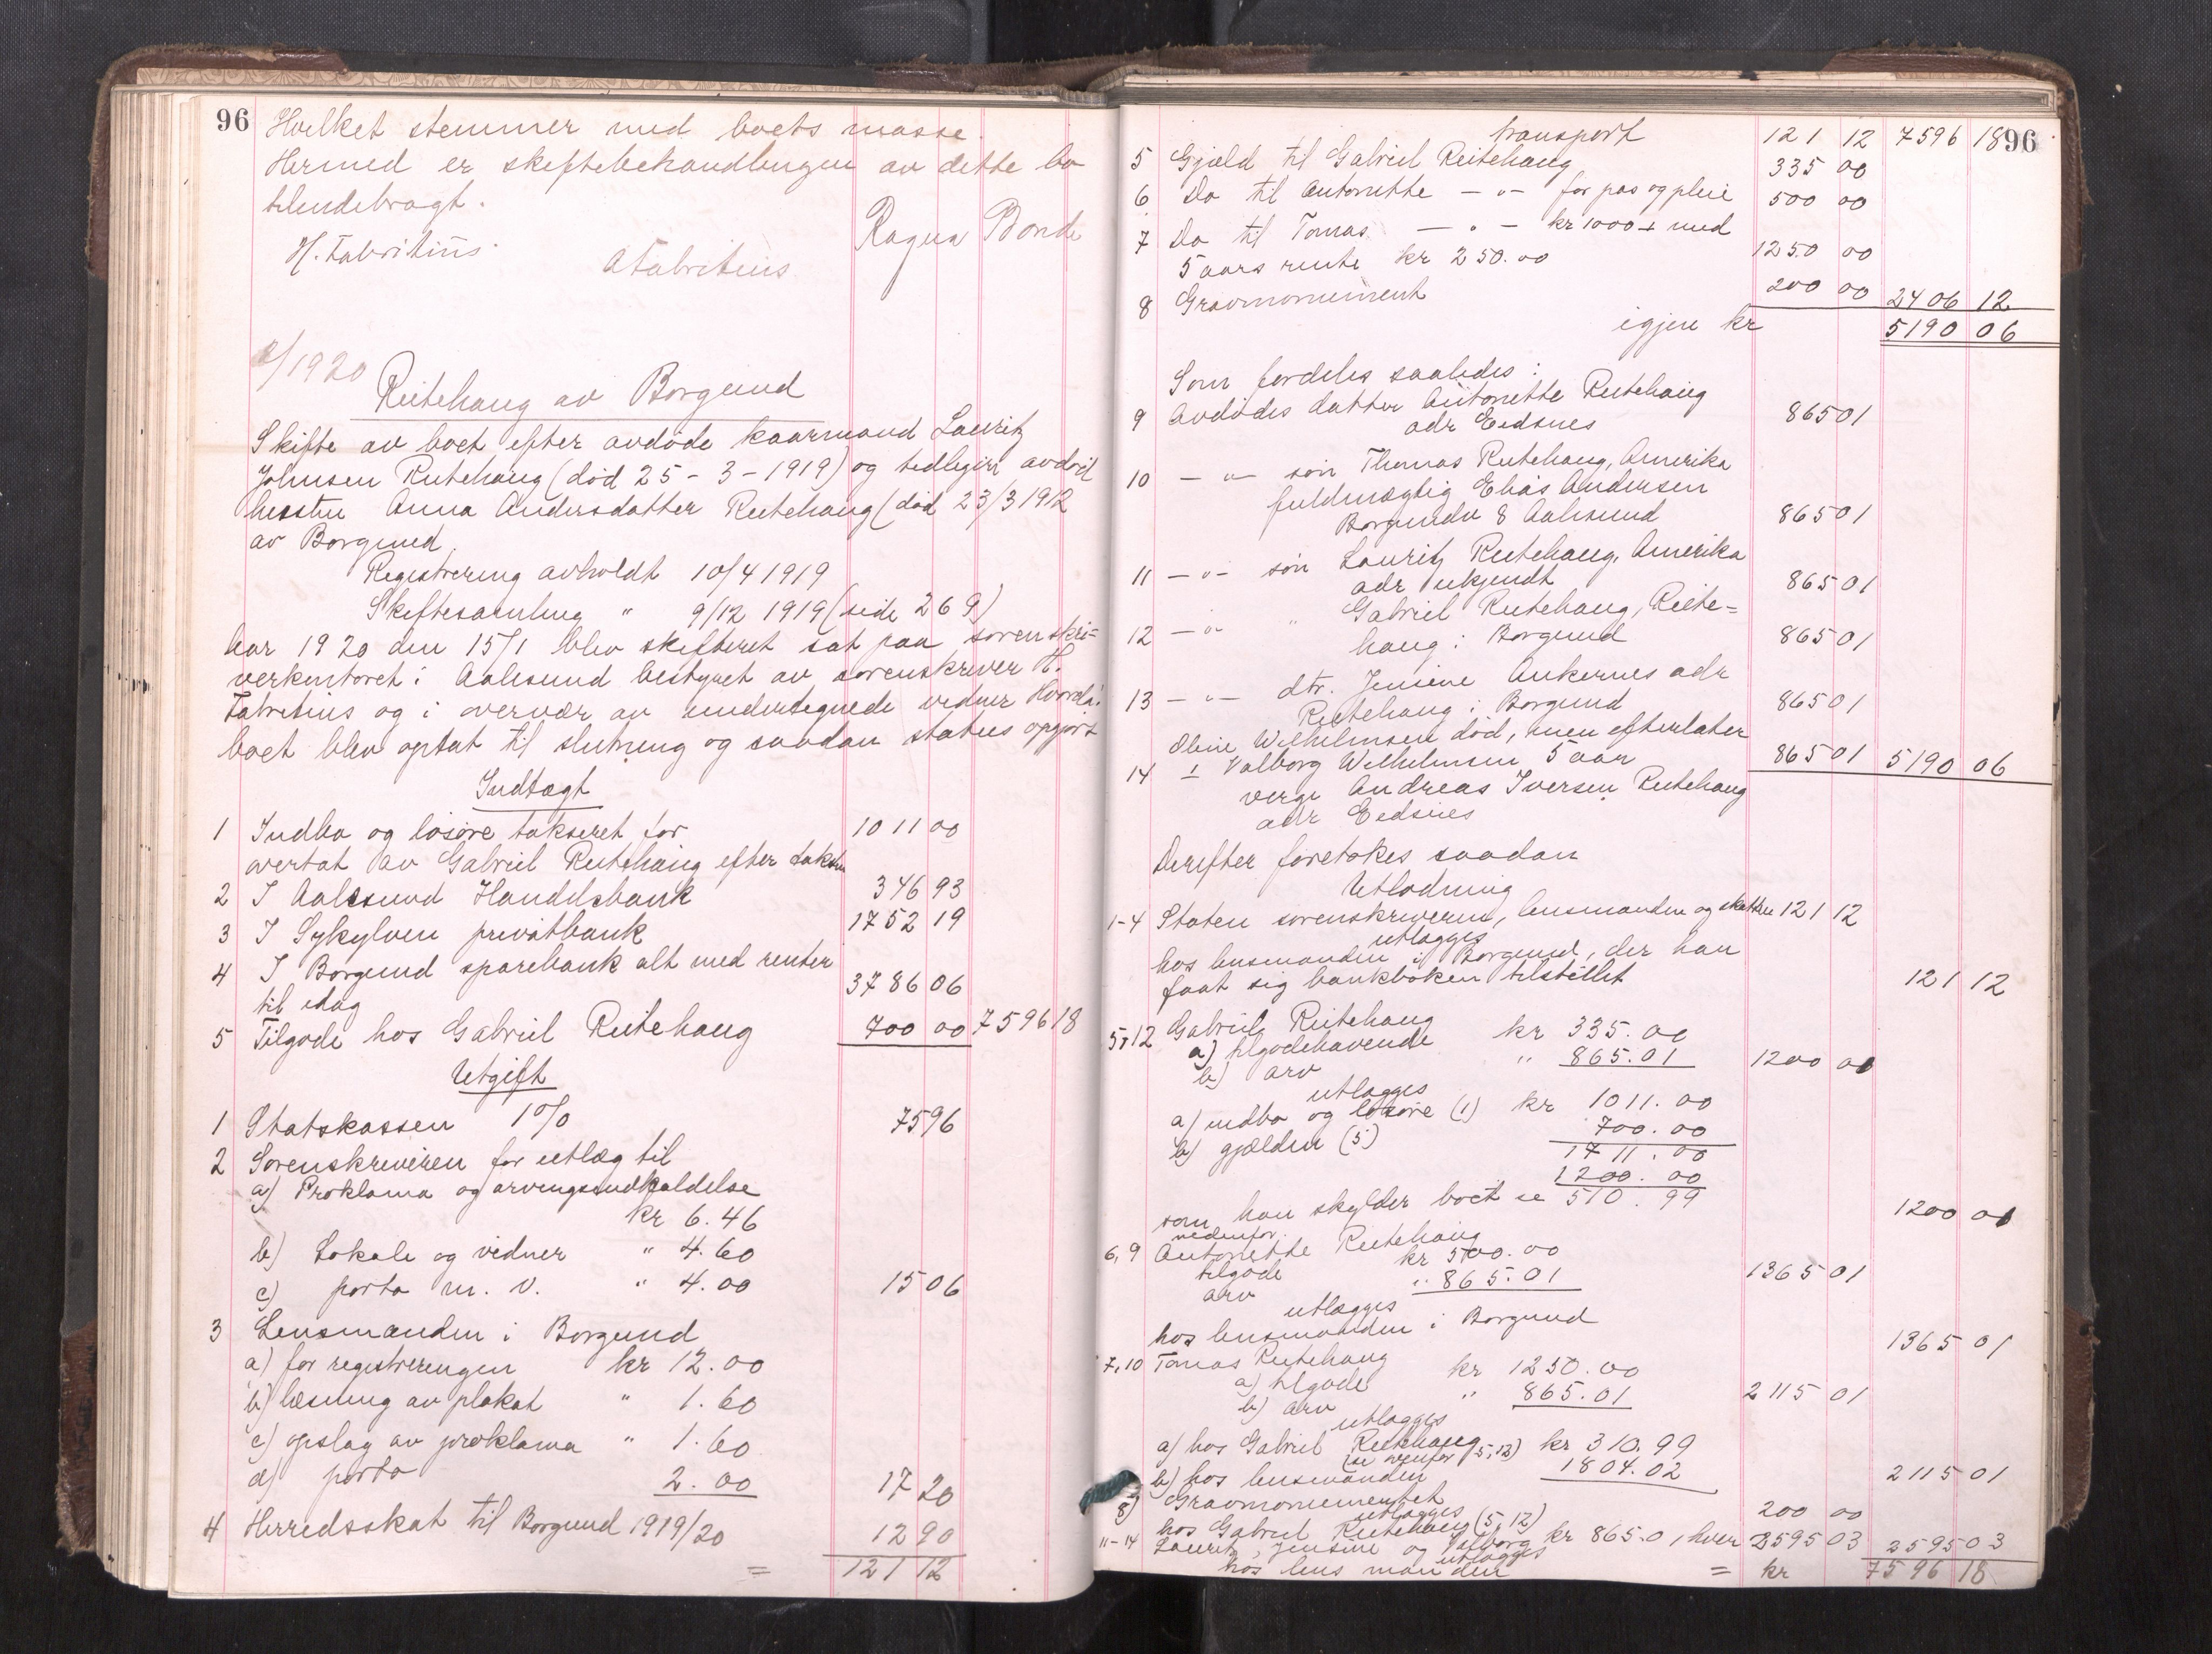 96
Hvilket stemmer med boets masse.
Hermed er skiftebehandlingen av dette bo
tilendebragt.
H. Fabritius.
AFabritius
Ragna Bonde
/1920
Reitehaug av Borgund
Skifte av boet efter avdøde kaarmand Lauritz
Johnsen Reitehaug (død 25-3-1919) og tidligere avdød
hustru Anna Andersdatter Reitehaug (død 23/3 1912
av Borgund
Registrering avholdt 10/4 1919
Skiftesamling " 9/12 1919 (side 269)
Aar 1920 den 15/1 blev skifteret sat paa sorenskri=
verkontoret i Aalesund bestyret av sorenskriver H.
Fabritius og i overvær av undertegnede vidner. Hvorda
boet blev optat til slutning og saadan status opgjort
Indtægt
1 Indbo og løsøre takseret for 1011 00
overtat av Gabriel Reitehaug efter taksten
2 I Aalesund Handelsbank 346 93
3 I Sykylven privatbank 1752 19
4 I Borgund sparebank alt med renter
til idag 3786 06
5 Tilgode hos Gabriel Reitehaug 700 00 7596 18
Utgift
1 Statskassen 1% 75 96
2 Sorenskriveren for utlæg til
a) Proklama og arvingsindkaldelse
kr 6.46
b) Lokale og vidner " 4.60
c) porto m. v. " 4.00 15 06
3 Lensmanden i Borgund
a) for registreringen kr 12.00
b) læsning av plakat " 1.60
c) opslag av proklama " 1.60
d) porto 2.00 17 20
4 Herredsskat til Borgund 1919/20 12 90
= 121 12
96
transport 121 12 7596 18
5 Gjæld til Gabriel Reitehaug 335 00
6 Do til Antonette — " — for pas og pleie 500 00
7 Do til Tomas — " — kr 1000 + med
5 aars rente kr 250.00 1250 00
8 Gravmonument 200 00 2406 12
igjen kr 5190 06
Som fordeles saaledes:
9 Avdødes datter Antonette Reitehaug
adr Eidsnes 865 01
10 — " — søn Thomas Reitehaug, Amerika
fuldmægtig Elias Andersen
Borgundv 8 Aalesund 865 01
11 — " — søn Lauritz Reitehaug, Amerika
adr ukjendt 865 01
12 — " — " Gabriel Reitehaug, Reite=
haug i Borgund 865 01
13 — " — dtr. Jensine Aukernes adr
Reitehaug i Borgund 865 01
Oline Wilhelmsen død, men efterlater
14 1 Valborg Wilhelmsen 5 aar 865 01 5190 06
verge Andreas Iversen Reitehaug
adr Eidsnes
Derefter foretokes saadan
Utlodning
1-4 Staten sorenskriveren, lensmanden og skatten 121 12
utlægges
hos lensmanden i Borgund, der har
faat sig bankboken tilstillet 121 12
5, 12 Gabriel Reitehaug
a) tilgodehavende kr 335.00
b) arv " 865.01 1200 01
utlægges
a) indbo og løsøre (1) kr 1011.00
b) gjælden (5) 700.00
1711.00
1200.00
som han skylder boet se 510.99 1200 01
nedenfor.
6, 9 Antonette Reitehaug
tilgode kr 500.00
arv " 865.01 1365 01
utlægges
hos lensmanden i Borgund 1365 01
7, 10 Tomas Reitehaug
a) tilgode kr 1250.00
b) arv " 865.01 2115 01
utlægges
a) hos Gabriel Reitehaug kr 310.99
(se ovenfor 5, 12)
b) hos lensmanden 1804.02 2115 01
8) Gravmonumentet 200 00
utlægges
hos Gabriel Reitehaug (5, 12)
11-14 Lauritz, Jensine og Valborg kr 865.01 hver 2595 03 2595 03
utlægges
hos lensmanden = kr 7596 18